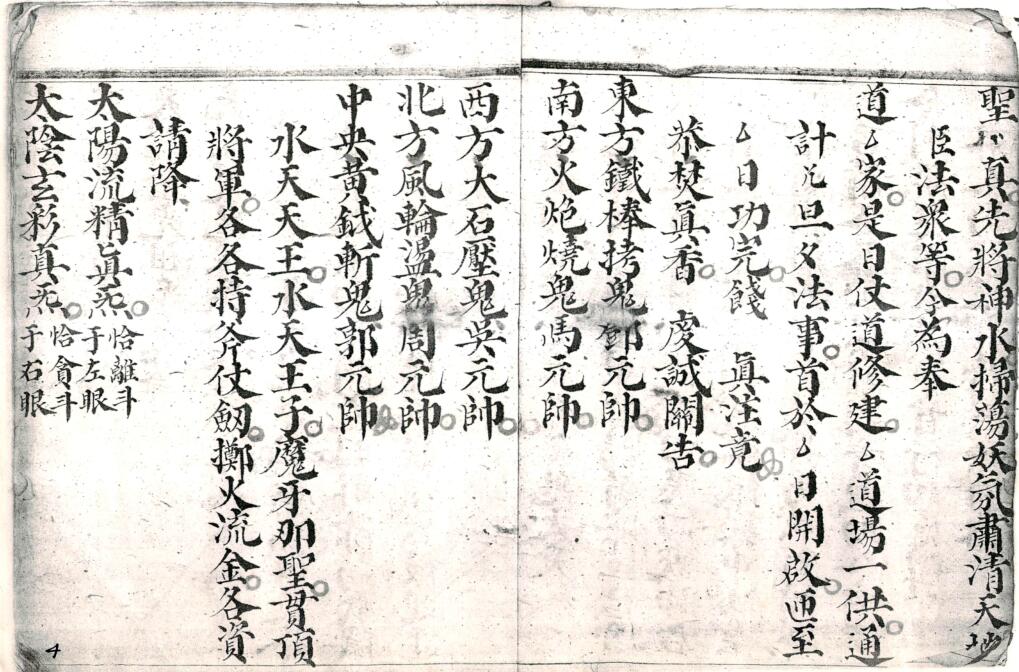 聖〻真先將神水掃蕩妖氛肅清天地
臣法衆等今為奉
道厶家是日仗道修建厶道場一供通
計几旦夕法事首於厶日開啟迊至
厶日功完餞 眞注竟
恭焚眞香 虔誠關告
東方鐵棒拷鬼鄧元帥
南方火炮燒鬼馬元帥
西方大石壓鬼吳元帥
北方風輪盪鬼周元帥
中央黃鉞斬鬼郭元帥
水天天王水天王子魔牙那聖貫頂
將軍各各持斧仗劔擲火流金各資
請降
太陽流精眞炁 恰離斗于左眼
太陰玄彩真炁 恰貪斗于右眼
4